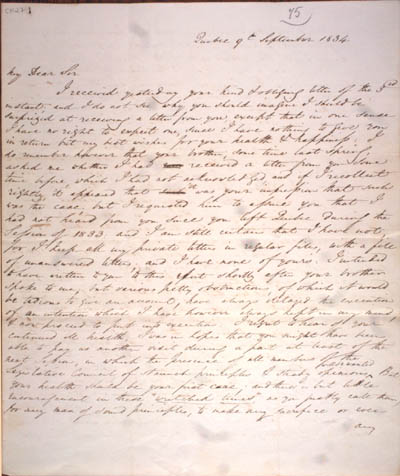 75
Quebec 9th September 1834
My Dear Sir
I received yesterday your kind & obliging letter of the 3rd
instant and I do not see why you should imagine I should be
surprized at receiving a letter from you except that in one sense
I have no right to expect one, since I have nothing to give you
in return but my best wishes for your health & happiness. I
do remember however that your brother some time last spring
asked me whether I had received a letter from you some
time before, which I had not acknowledged, and if I recollect
rightly it appeared that it was your impression that such
was the case, but I requested him to apprise you that I
had not heard from you since you left Quebec during the
Session of 1833 and I am still certain that I have not,
for I keep all my private letters in regular files, with a file
of unanswered letters, and I have none of yours. I intended
to have written to you to this effect shortly after your brother
spoke to me, but various petty obstructions of which it would
be tedious to give an account, have always delayed the execution
of an intention which I have however always kept in my mind
& now proceed to put into execution. I regret to hear of your
continued ill health, as I was in hopes that you might have been
able to pay us another visit at Quebec if not at least at the
next Session, in which the presence of all members of the
Legislative Council of Staunch principles & steady opinions
But
Your health should be your first care; and there is but little
encouragement in these "wretched times" as you justly call them
for any man of sound principles, to make any sacrifice or even
any